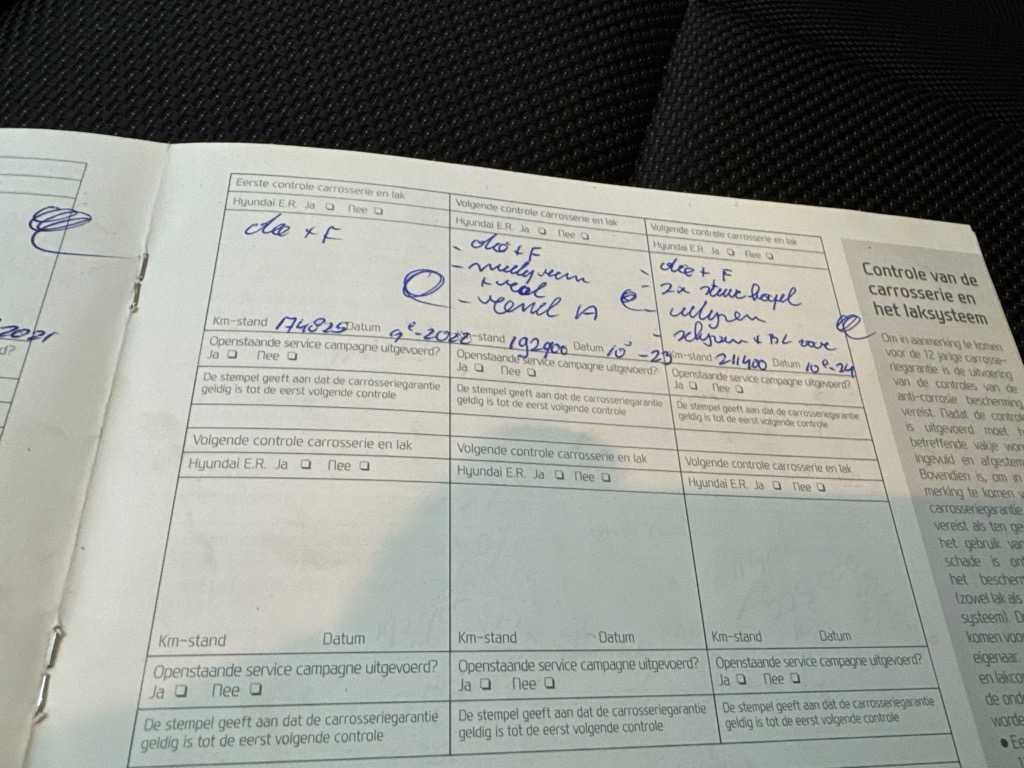 2021
d?
Eerste controle carrosserie en lak
Hyundai E.R. Ja ❏ Nee ❏
olie + F
Km-stand 174825 Datum 9e-2022
Openstaande service campagne uitgevoerd?
Ja ❏ Nee ❏
De stempel geeft aan dat de carrosseriegarantie
geldig is tot de eerst volgende controle
Volgende controle carrosserie en lak
Hyundai E.R. Ja ❏ Nee ❏
- olie + F
-
-
-stand 192900 Datum
Openstaande service campagne uitgevoerd?
Ja ❏ Nee ❏
De stempel geeft aan dat de carrosseriegarantie
geldig is tot de eerst volgende controle
Volgende controle carrosserie en lak
Hyundai E.R. Ja ❏ Nee ❏
- olie + F
- 2x
-
-
Km-stand 211400 Datum 10e-24
Openstaande service campagne uitgevoerd?
Ja ❏ Nee ❏
De stempel geeft aan dat de carrosseriegarantie
geldig is tot de eerst volgende controle
Volgende controle carrosserie en lak
Hyundai E.R. Ja ❏ Nee ❏
Km-stand Datum
Openstaande service campagne uitgevoerd?
Ja ❏ Nee ❏
De stempel geeft aan dat de carrosseriegarantie
geldig is tot de eerst volgende controle
Volgende controle carrosserie en lak
Hyundai E.R. Ja ❏ Nee ❏
Km-stand Datum
Openstaande service campagne uitgevoerd?
Ja ❏ Nee ❏
De stempel geeft aan dat de carrosseriegarantie
geldig is tot de eerst volgende controle
Volgende controle carrosserie en lak
Hyundai E.R. Ja ❏ Nee ❏
Km-stand Datum
Openstaande service campagne uitgevoerd?
Ja ❏ Nee ❏
De stempel geeft aan dat de carrosseriegarantie
geldig is tot de eerst volgende controle
Controle van de
carrosserie en
het laksysteem
Om in aanmerking te komen
voor de 12 jarige carrosse-
riegarantie is de uitvoering
van de controles van de
anti-corrosie bescherming
vereist. Nadat de control
is uitgevoerd moet h
betreffende vakje wor
ingevuld en afgestem
Bovendien is, om in
merking te komen v
carrosseriegarantie
vereist als ten ge
het gebruik van
schade is ont
het bescherm
(zowel lak als
systeem). D
komen voor
eigenaar.
en lakcon
de ond
worde
● Ee